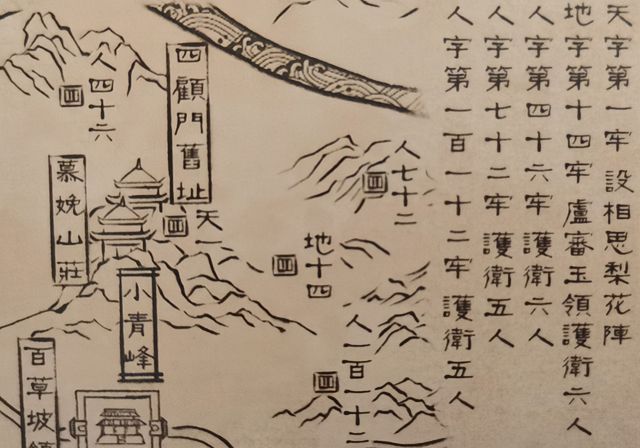 天字第一牢 設相思梨花陣
地字第十四牢 盧審玉領護衛六人
人字第四十六牢 護衛六人
人字第七十二牢 護衛五人
人字第一百一十二牢 護衛五人
人七十二
人一百一十二
地十四
四顧門舊址
天一
小青峰
人四十六
慕娩山莊
百草坡鎮